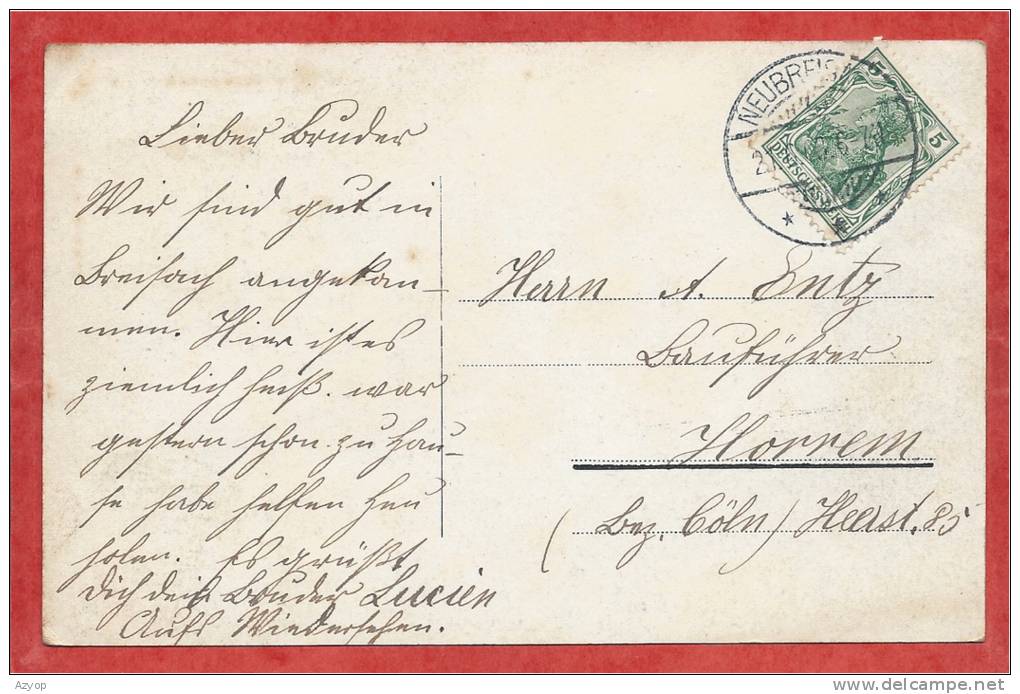 Lieber Bruder
Wir sind gut in
Breisach angekom-
men. Hier ist es
ziemlich heiß. war
gestern schon zu Hau-
se habe helfen Heu
holen. Es grüßt
Dich dein Bruder Lucien
Aufs Wiedersehen.
NEUBREIS
5
5
DEUTSCHES REICH
Herrn A. Entz
Bauführer
Horrem
(Bez. Cöln) Heerst. 85
Azyop
www.delcampe.net